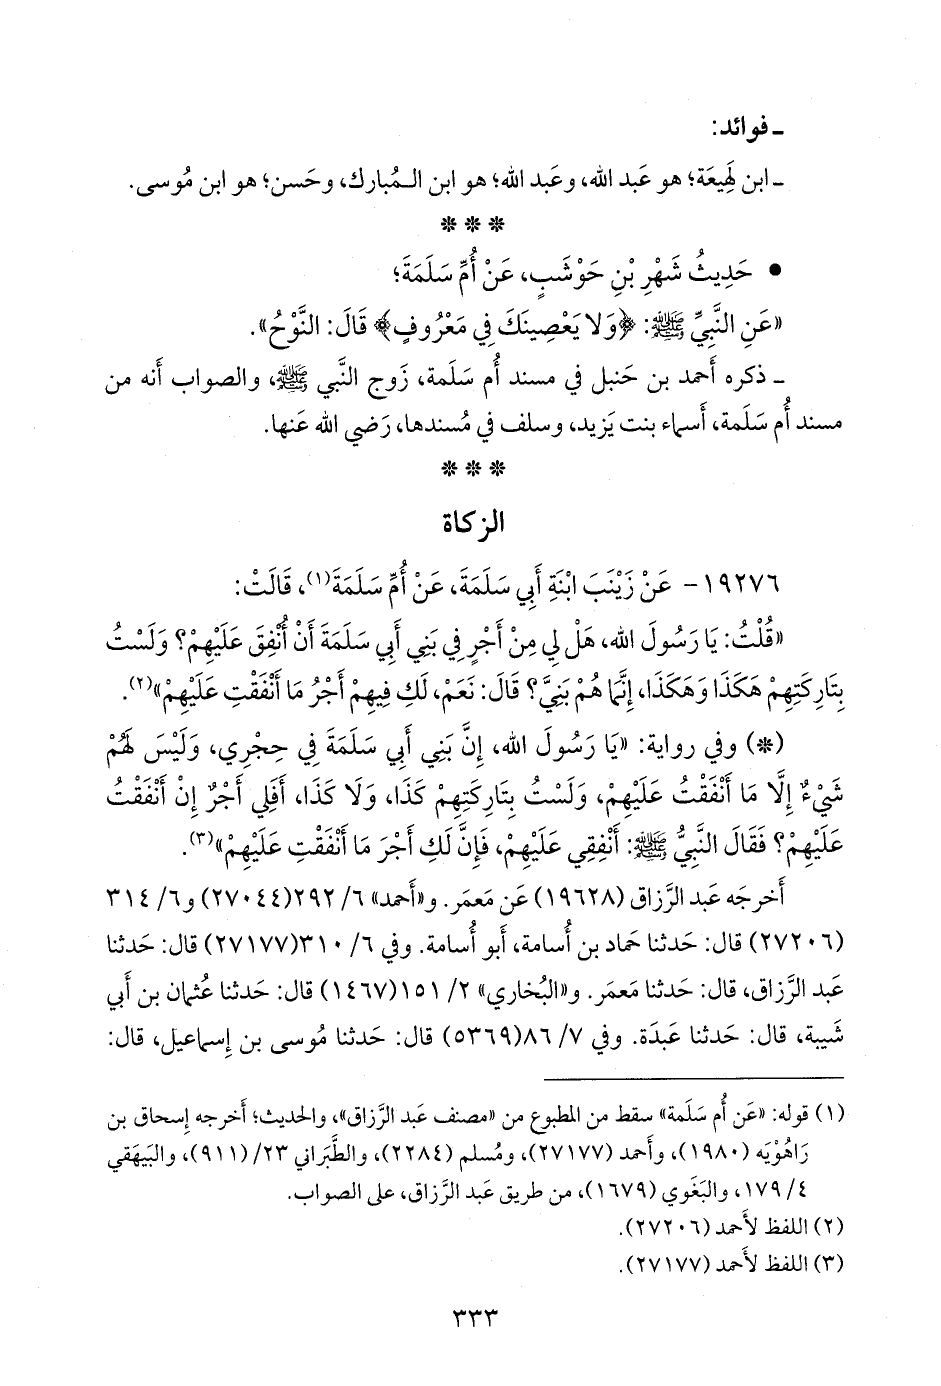 ـ فوائد:
ـ ابن لَهِيعَة؛ هو عَبد الله، وعَبد الله؛ هو ابن الـمُبارك، وحَسن؛ هو ابن مُوسى.
* * *
• حَدِيثُ شَهْرِ بْنِ حَوْشَبٍ، عَنْ أُمِّ سَلَمَةَ؛
«عَنِ النَّبِيِّ ﷺ: ﴿وَلَا يَعْصِينَكَ فِي مَعْرُوفٍ﴾ قَالَ: النَّوْحُ».
ـ ذكره أَحمد بن حَنبل في مسند أُم سَلَمة، زَوج النَّبي ﷺ، والصواب أَنه من
مسند أُم سَلَمة، أَسماء بنت يَزيد، وسلف في مُسندها، رَضي الله عَنها.
* * *
الزكاة
١٩٢٧٦- عَنْ زَيْنَبَ ابْنَةِ أَبِي سَلَمَةَ، عَنْ أُمِّ سَلَمَةَ(١)، قَالَتْ:
«قُلْتُ: يَا رَسُولَ الله، هَلْ لِي مِنْ أَجْرٍ فِي بَنِي أَبِي سَلَمَةَ أَنْ أُنْفِقَ عَلَيْهِمْ؟ وَلَسْتُ
بِتَارِكَتِهِمْ هَكَذَا وَهَكَذَا، إِنَّمَا هُمْ بَنِيَّ؟ قَالَ: نَعَمْ، لَكِ فِيهِمْ أَجْرُ مَا أَنْفَقْتِ عَلَيْهِمْ»(٢).
(*) وفي رواية: «يَا رَسُولَ الله، إِنَّ بَنِي أَبِي سَلَمَةَ فِي حِجْرِي، وَلَيْسَ لَهُمْ
شَيْءٌ إِلَّا مَا أَنْفَقْتُ عَلَيْهِمْ، وَلَسْتُ بِتَارِكَتِهِمْ كَذَا، وَلَا كَذَا، أَفَلِي أَجْرٌ إِنْ أَنْفَقْتُ
عَلَيْهِمْ؟ فَقَالَ النَّبِيُّ ﷺ: أَنْفِقِي عَلَيْهِمْ، فَإِنَّ لَكِ أَجْرَ مَا أَنْفَقْتِ عَلَيْهِمْ»(٣).
أَخرجَه عَبد الرَّزاق (١٩٦٢٨) عَن مَعمَر. و«أَحمد» ٦/ ٢٩٢(٢٧٠٤٤) و٦/ ٣١٤
(٢٧٢٠٦) قال: حَدثنا حَماد بن أُسامة، أَبو أُسامة. وفي ٦/ ٣١٠(٢٧١٧٧) قال: حَدثنا
عَبد الرَّزاق، قال: حَدثنا مَعمَر. و«البُخاري» ٢/ ١٥١(١٤٦٧) قال: حَدثنا عُثمان بن أَبي
شَيبة، قال: حَدثنا عَبدَة. وفي ٧/ ٨٦(٥٣٦٩) قال: حَدثنا مُوسى بن إِسماعيل، قال:
(١) قوله: «عَن أُم سَلَمة» سقط من المطبوع من «مصنف عَبد الرَّزاق»، والحديث؛ أَخرجه إِسحاق بن
رَاهُوْيَه (١٩٨٠)، وأَحمد (٢٧١٧٧)، ومُسلم (٢٢٨٤)، والطَّبَراني ٢٣/(٩١١)، والبَيهَقي
٤/ ١٧٩، والبَغَوي (١٦٧٩)، من طريق عَبد الرَّزاق، على الصواب.
(٢) اللفظ لأَحمد (٢٧٢٠٦).
(٣) اللفظ لأَحمد (٢٧١٧٧).
٣٣٣